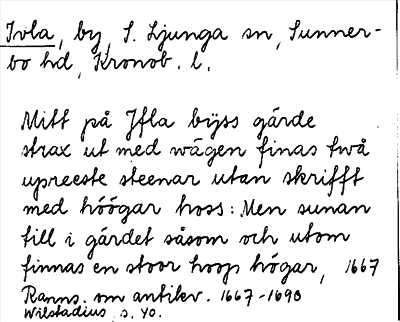 Ivla, by, S. Ljunga sn, Sunner-
bo hd, Kronob. l.
Mitt på Ifla byss gärde
strax ut med wägen finas twå
upreeste steenar utan skrifft
med höögar hoss: Men sunan
till i gärdet såsom och utom
finnas en stoor hoop högar, 1667
Ranns. om antikv. 1667-1690
Wilstadius, s. 40.